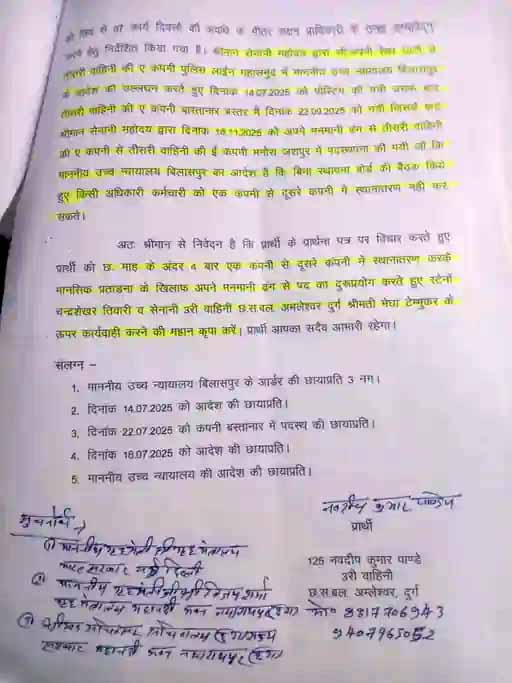 को लेख से दो कार्य दिवसों की अवधि के भीतर सक्षम प्राधिकारी के समक्ष अभ्यावेदन
करने हेतु निर्देशित किया गया है। श्रीमान सेनानी महोदय द्वारा
तीसरी वाहिनी की ए कंपनी पुलिस लाईन महासमुंद में माननीय उच्च न्यायालय बिलासपुर
के आदेश का उल्लघन करते हुए दिनांक 14.07.2025 को पोस्टिंग की गयी उसके बाद
तीसरी वाहिनी की ए कंपनी बास्तानार बस्तर में दिनांक 22.09.2025 को गयी जिसके बाद
श्रीमान सेनानी महोदय द्वारा दिनांक 18.11.2025 को अपने मनमानी ढंग से तीसरी वाहिनी
की ए कंपनी से तीसरी वाहिनी की ई कंपनी मनोरा जशपुर में पदस्थापना की गयी जो कि
माननीय उच्च न्यायालय बिलासपुर का आदेश है कि बिना स्थापना बोर्ड की बैठक किये
हुए किसी अधिकारी कर्मचारी को एक कंपनी से दूसरे कंपनी मे स्थानातरण नही कर
सकते।
अतः श्रीमान से निवेदन है कि प्रार्थी के प्रार्थना पत्र पर विचार करते हुए
प्रार्थी को छ. माह के अंदर 4 बार एक कंपनी से दूसरे कंपनी में स्थानातरण करके
मानसिक प्रताडना के खिलाफ अपने मनमानी ढंग से पद का दुरूप्रयोग करते हुए स्टेनों
चन्द्रशेखर तिवारी व सेनानी 3री वाहिनी छ.स.बल. अमलेश्वर दुर्ग श्रीमती मेघा टेम्भुकर के
ऊपर कार्यवाही करने की महान कृपा करें। प्रार्थी आपका सदैव आभारी रहेगा।
संलग्न –
1. माननीय उच्च न्यायालय बिलासपुर के आर्डर की छायाप्रति 3 नग।
2. दिनांक 14.07.2025 को आदेश की छायाप्रति।
3. दिनांक 22.07.2025 को कंपनी बस्तानार मे पदस्थ की छायाप्रति।
4. दिनांक 18.07.2025 को आदेश की छायाप्रति।
5. माननीय उच्च न्यायालय की आदेश की छायाप्रति।
नवदीप कुमार पाण्डेय
प्रार्थी
125 नवदीप कुमार पाण्डे
3री वाहिनी
छ.स.बल. अम्लेश्वर, दुर्ग
मो० 8817706943
9407965052
सुचनार्थ
① माननीय गृहमंत्री जी गृह मंत्रालय
भारत सरकार नई दिल्ली
② माननीय गृहमंत्री जी श्री विजय शर्मा
गृह मंत्रालय महानदी भवन नवा रायपुर (छ०ग)
③
महानदी भवन नवा रायपुर (छ०ग)